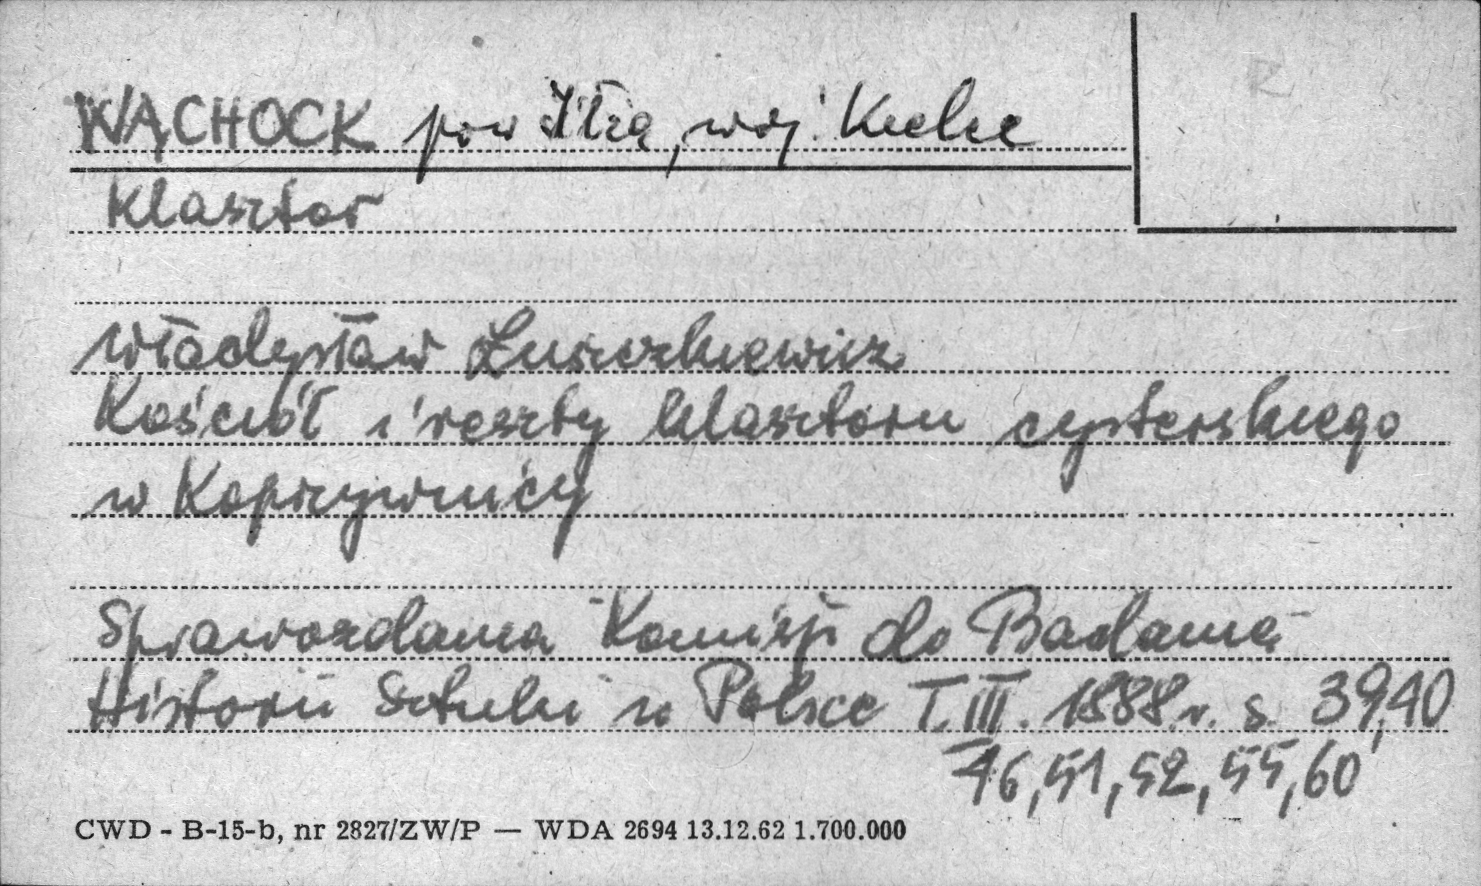 WĄCHOCK pow Iłża, woj. Kielce
R
Klasztor
Władysław Łuszczkiewicz
Kościół i reszty klasztoru cysterskiego
w Koprzywnicy
Sprawozdania Komisji do Badania
Historii Sztuki w Polsce T. III. 1888 r. s. 39,40
46, 51, 52, 55, 60
CWD - B-15-b, nr 2827/ZW/P — WDA 2694 13.12.62 1.700.000